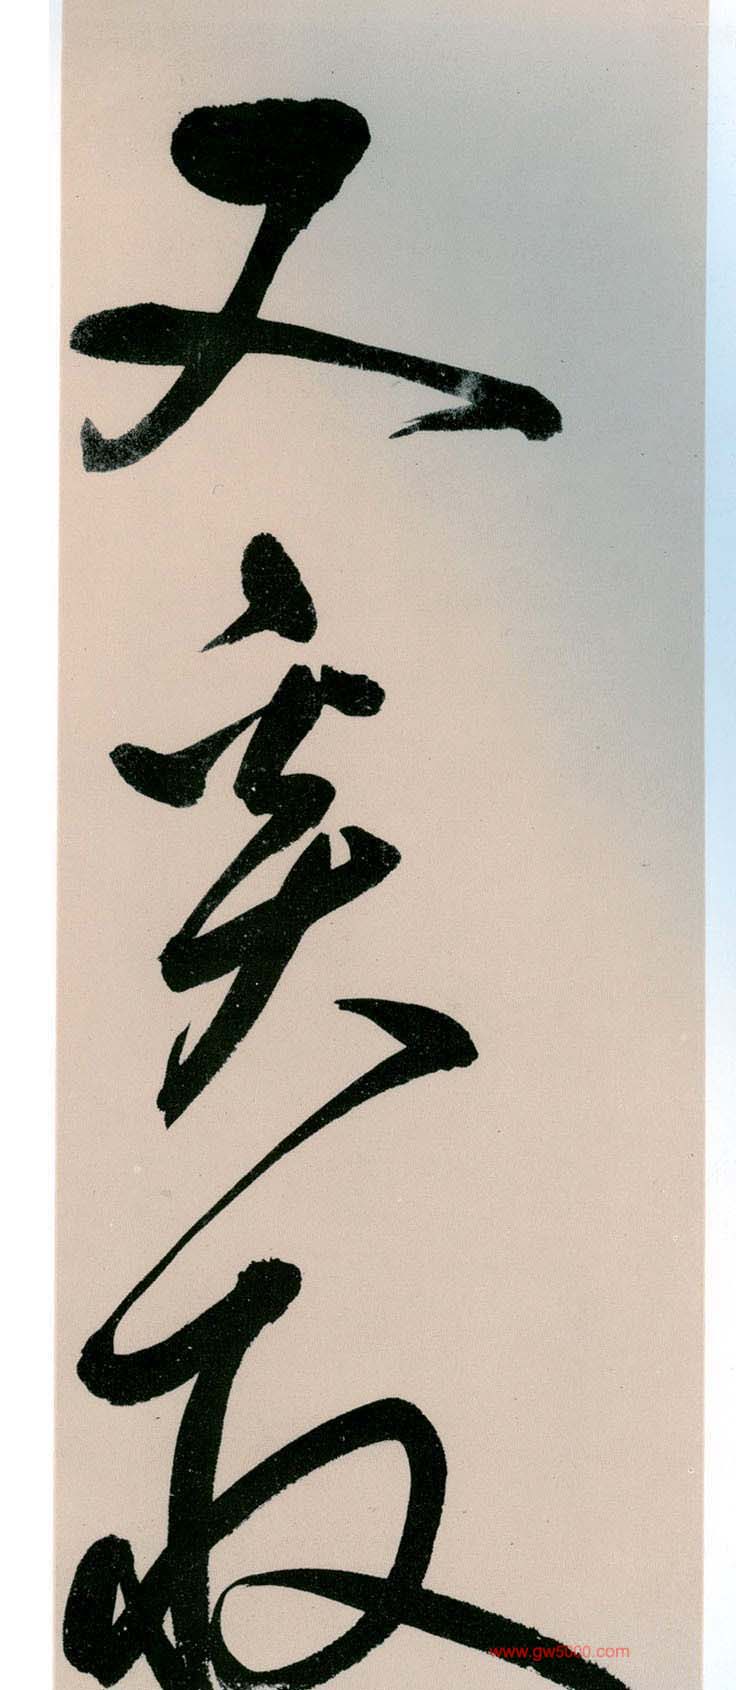 又奚取
www.gw5000.com